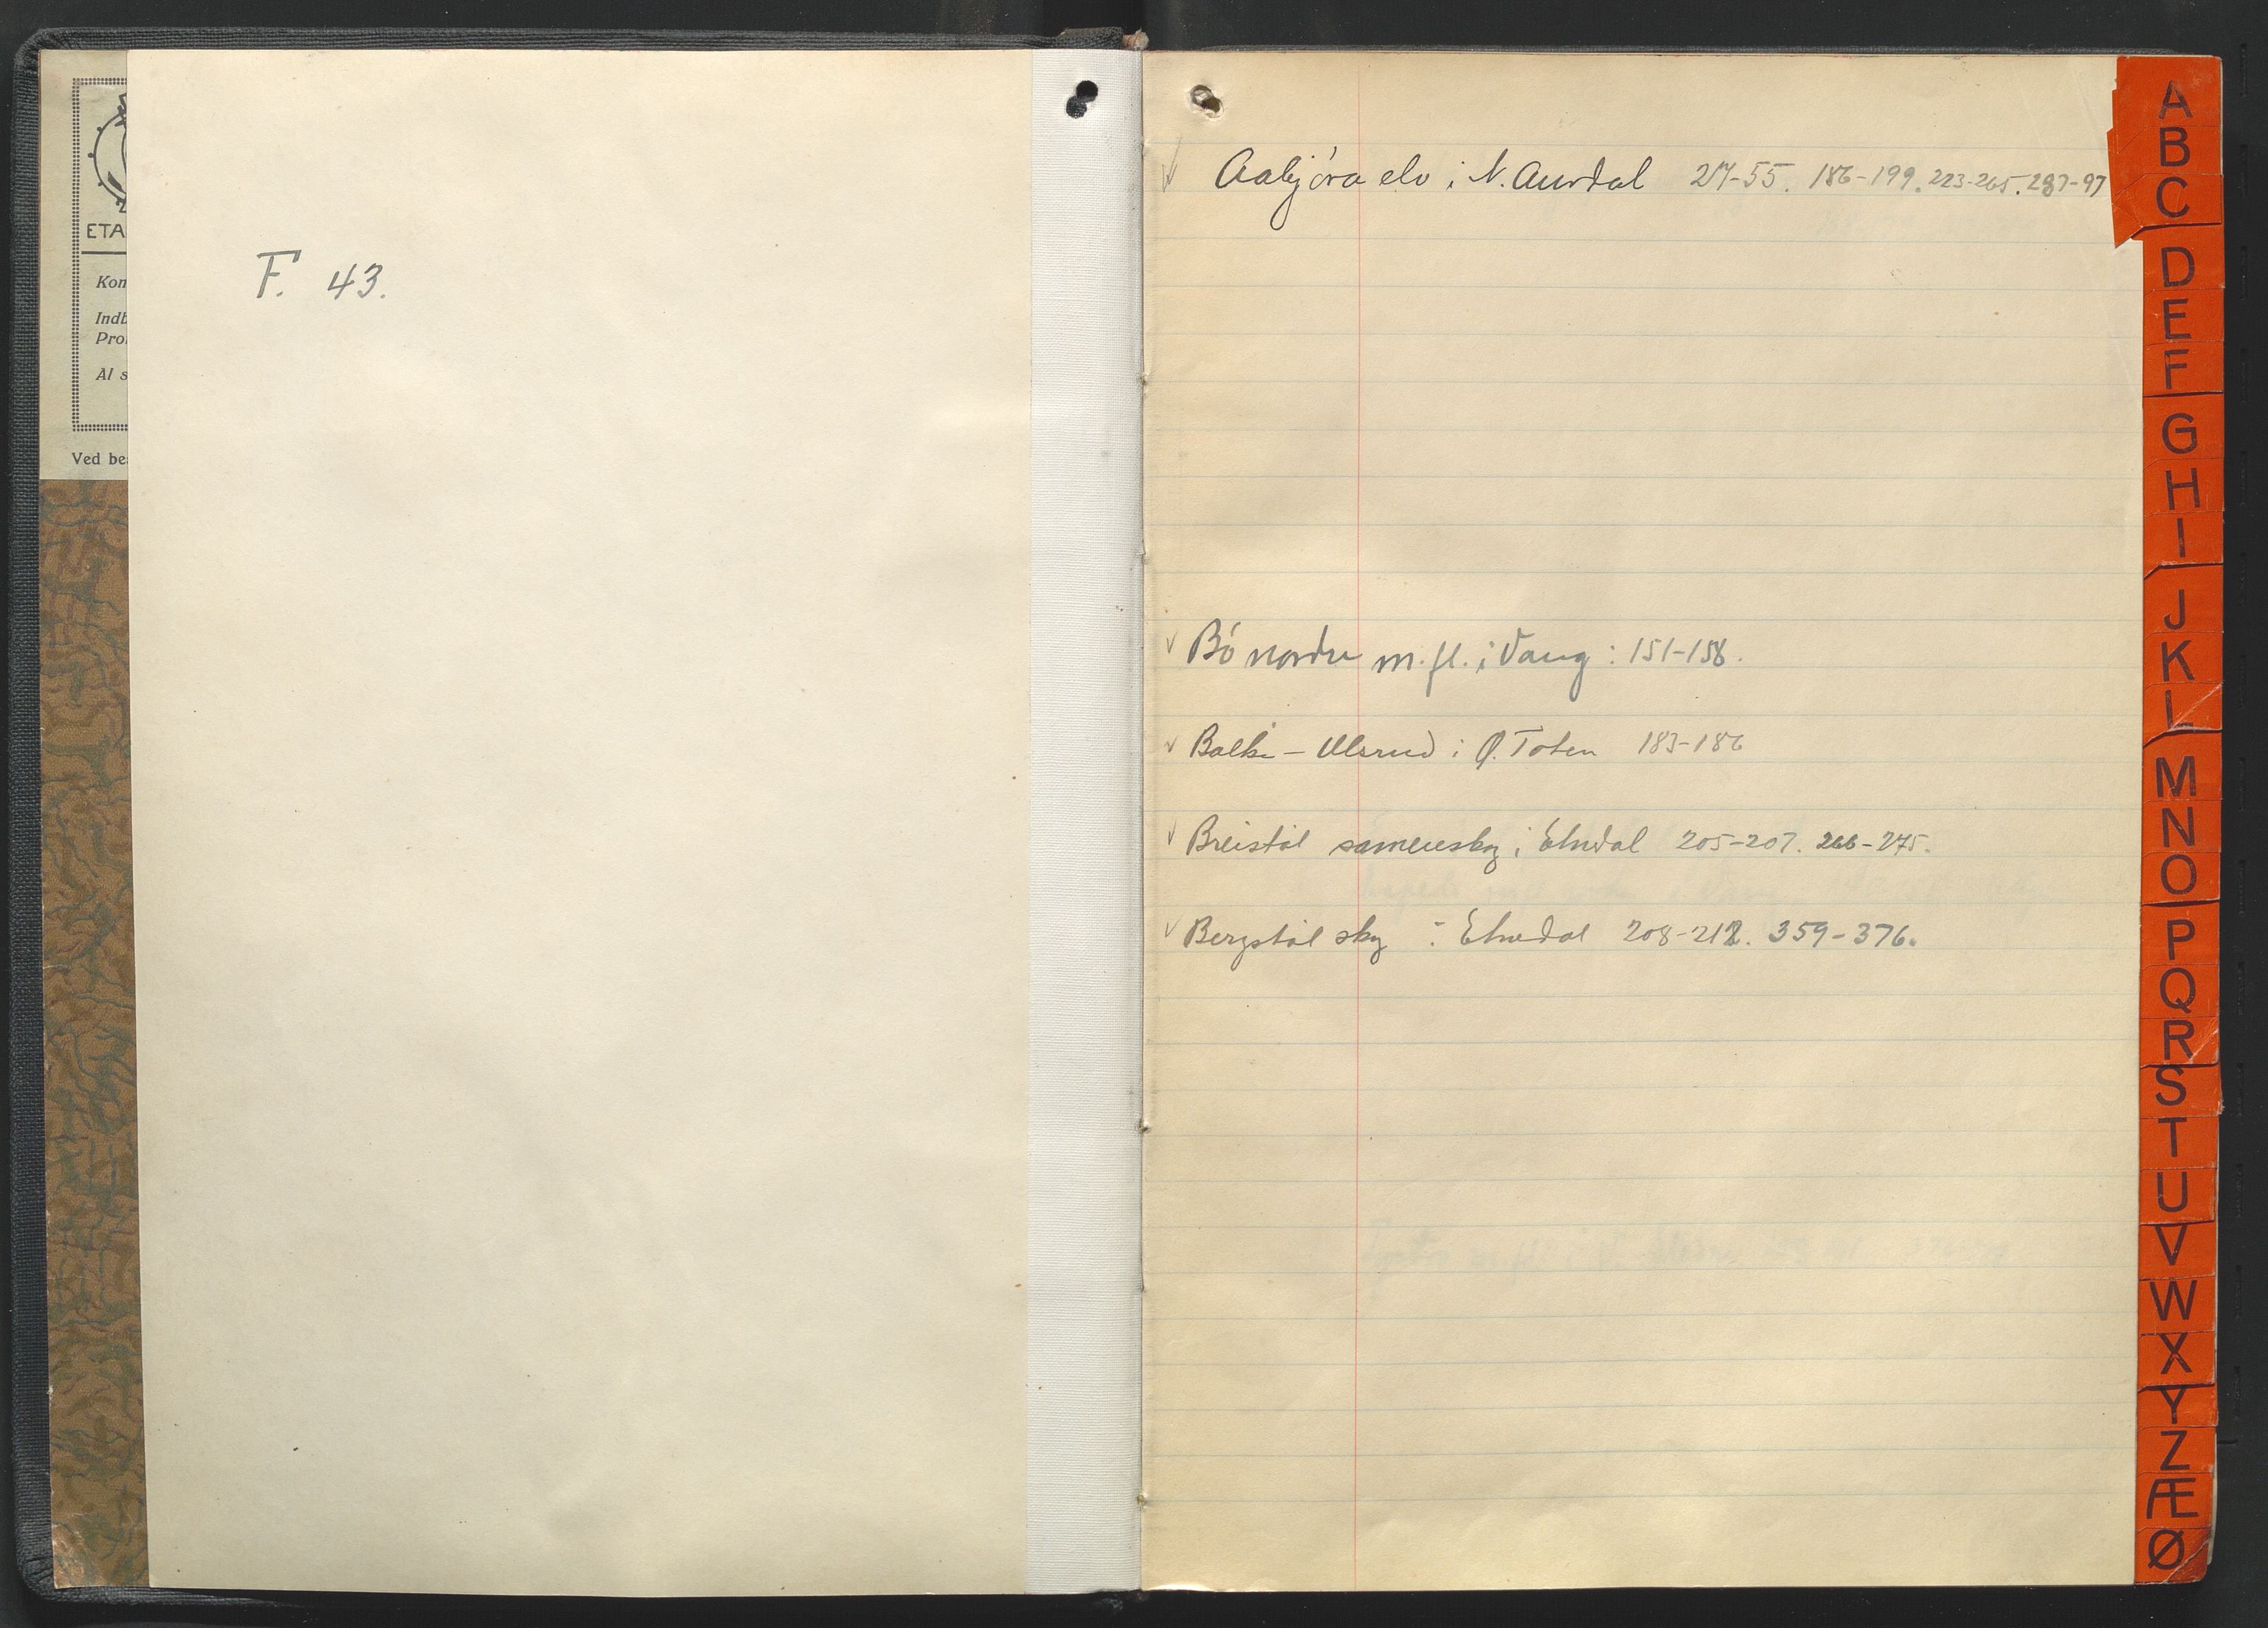 ETA
Kon
Indb
Pro
Al s
Ved be
F. 43.
Aabjöra elv i N. Aurdal 217-55. 186-199. 223-265. 287-97
Bö nordre m.fl. i Vang: 151-158.
Balke - Ulsrud i Ø. Toten 183-186
Breistöl sameieskog i Etnedal 205-207. 266-275.
Bergstöl skog i Etnedal 208-212. 359-376.
A
B
C
D
E
F
G
H
I
J
K
L
M
N
O
P
Q
R
S
T
U
V
W
X
Y
Z
Æ
Ø